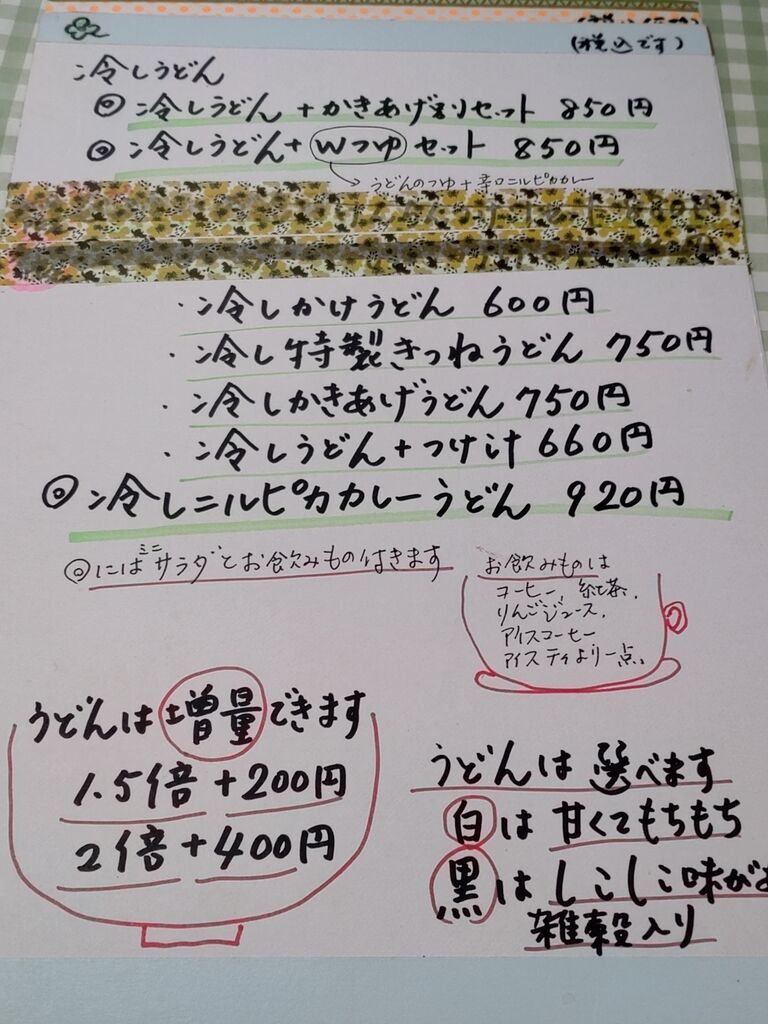 (税込です)
冷しうどん
◎冷しうどん+かきあげ割りセット 850円
◎冷しうどん+Wつゆセット 850円
うどんのつゆ+辛口ニルピカカレー
・冷しかけうどん 600円
・冷し特製きつねうどん 750円
・冷しかきあげうどん 750円
・冷しうどん+つけ汁 660円
◎冷しニルピカカレーうどん 920円
◎にはミニサラダとお飲みもの付きます
お飲みものは
コーヒー、紅茶、
りんごジュース、
アイスコーヒー
アイスティより一点。
うどんは増量できます
1.5倍+200円
2倍+400円
うどんは選べます
白は甘くてもちもち
黒はしこしこ味が
雑穀入り